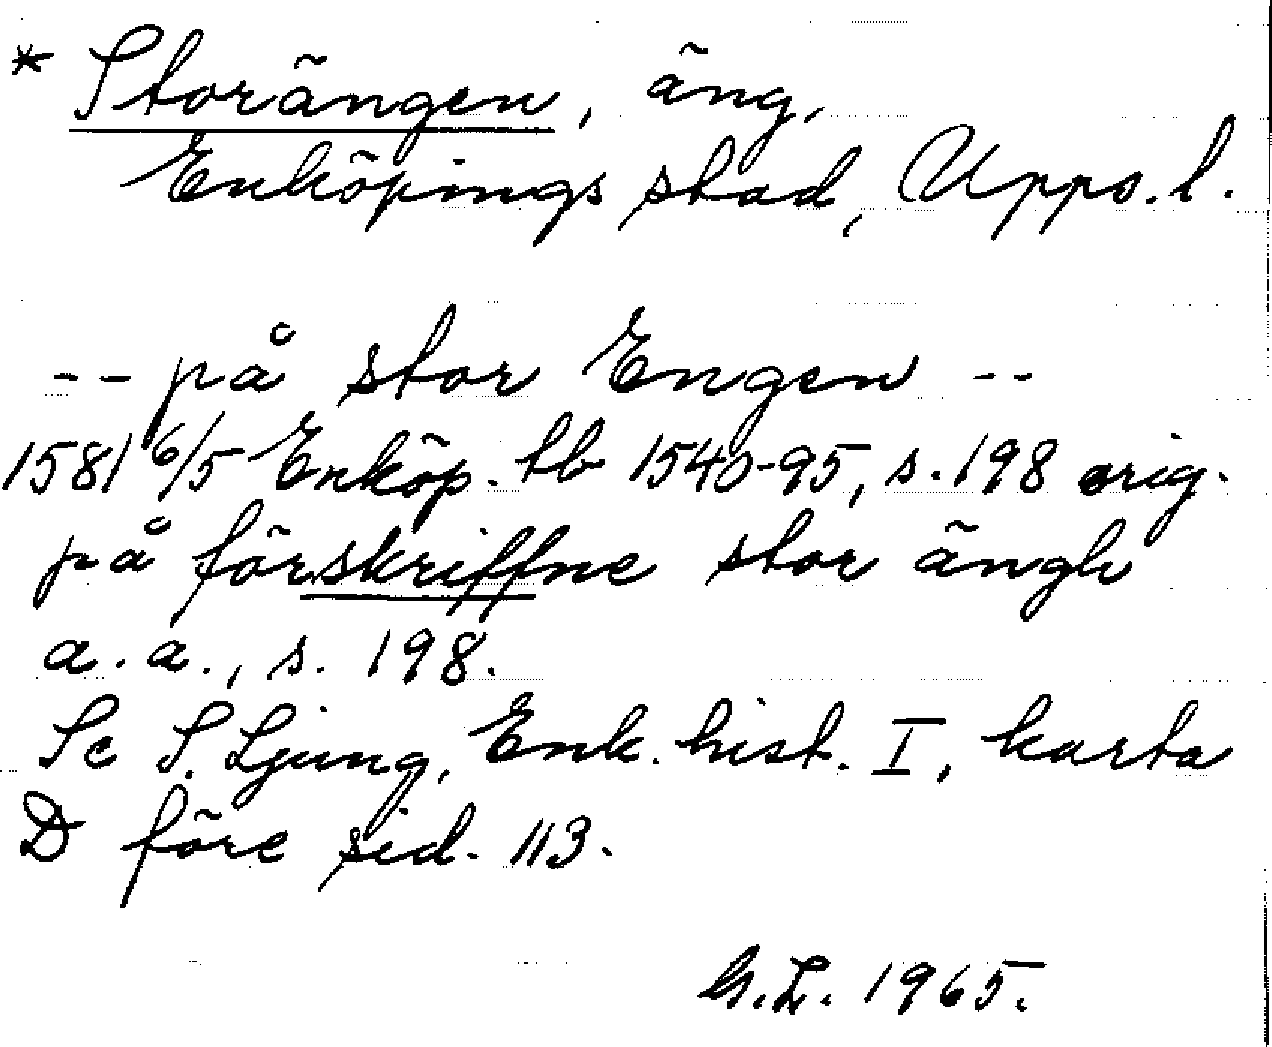 * Storängen, äng,
Enköpings stad, Upps. l.
-- på stor Engen --
1581 6/5 Enköp. tb 1540-95, s. 198 orig.
på förskriffne stor ängh
a. a., s. 198.
Se S. Ljung, Enk. hist. I, karta
D före sid. 113.
G.L. 1965.